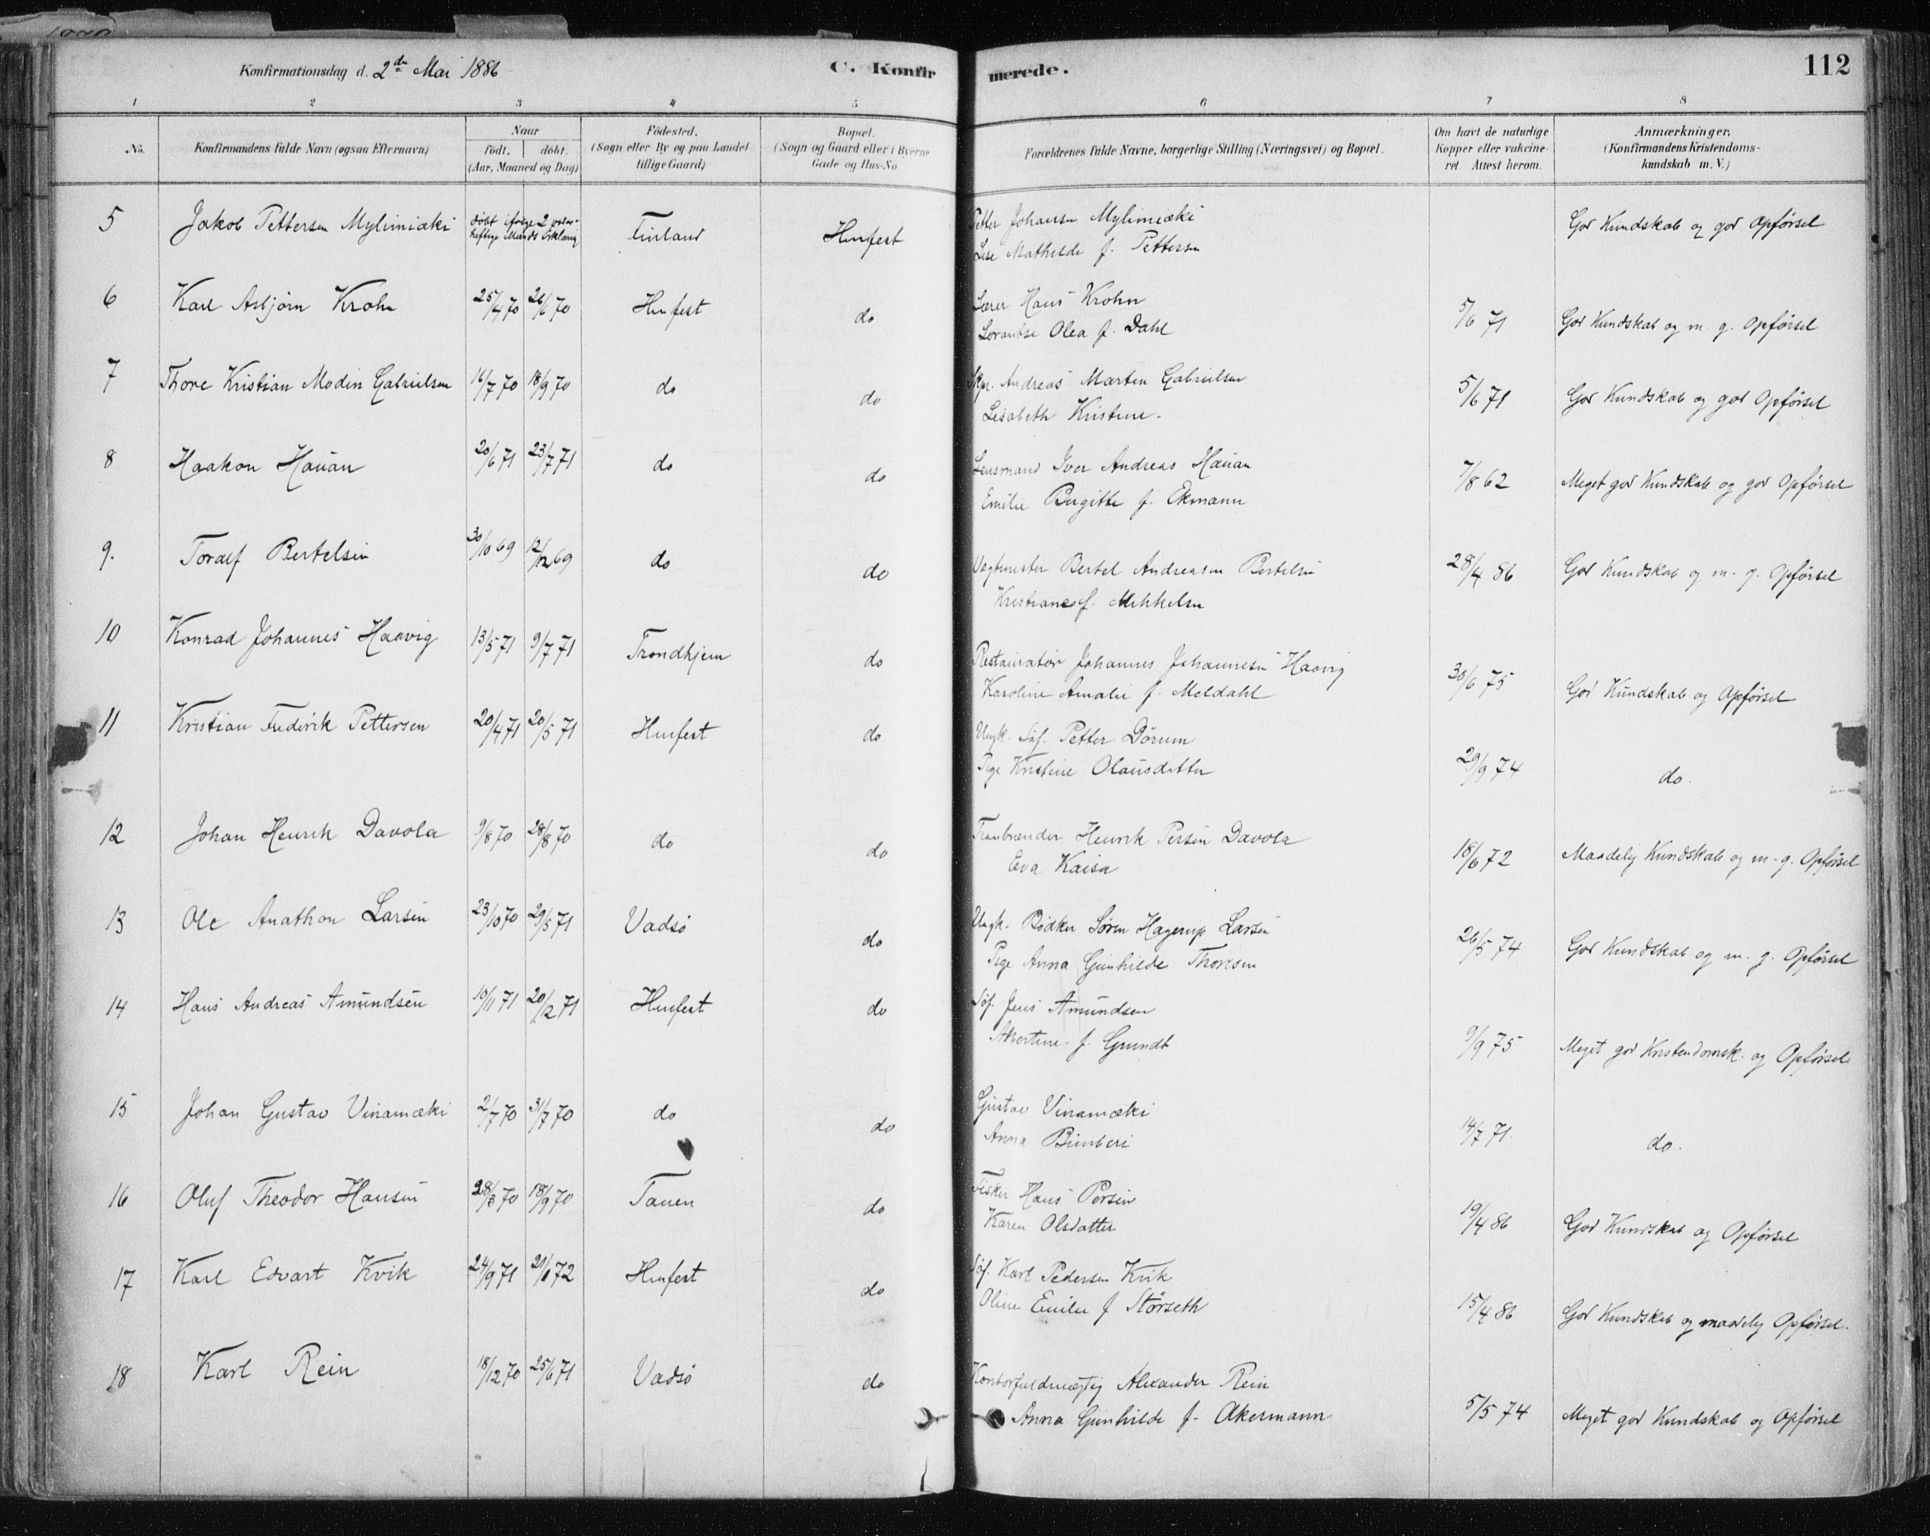 Konfirmationsdag d. 2den Mai 1886 C. Konfirmerede. 112
1 2 3 4 5 6 7 8
No. Konfirmandens fulde Navn (ogsaa Efternavn) Naar født. døbt. (Aar, Maaned og Dag) Fødested. (Sogn eller By og paa Landet tillige Gaard) Bopæl. (Sogn og Gaard eller i Byerne Gade og Hus-No. Forældrenes fulde Navne, borgerlige Stilling (Næringsvei) og Bopæl. Om havt de naturlige Kopper eller vakcineret. Attest herom. Anmærkninger. (Konfirmandens Kristendomskundskab m. V.)
5 Jakob Pettersen Mylimiæki døbt ifølge 2 Finland Hmfest Petter Johansen Mylimiæki God Kundskab og god Opførsel
Lise Mathilde f. Pettersen
6 Karl Asbjørn Krohn 25/4 70 26/6 70 Hmfest do Lærer Hans Krohn 5/6 71 God Kundskab og m. g. Opførsel
Lorentse Olea f. Dahl
7 Thore Kristian Modin Gabrielsen 16/7 70 18/9 70 do do Skpr. Andreas Marten Gabrielsen 5/6 71 God Kundskab og god Opførsel
Lisabeth Kristine.
8 Haakon Hauan 20/6 71 23/7 71 do do Lensmand Iver Andreas Hauan 7/8 62 Meget god Kundskab og god Opførsel
Emilie Birgitte f. Ekmann
9. Toralf Bertelsen 30/10 69 12/12 69 do do Vagtmester Bertel Andreasen Bertelsen 28/4 86 God Kundskab og m. g. Opførsel
Kristiane f. Mikkelsen
10 Konrad Johannes Haavig 13/5 71 9/7 71 Trondhjem do Restauratør Johannes Johannesen Haavig 30/6 75 God Kundskab og Opførsel
Karoline Amalie f. Meldahl
11 Kristian Fredrik Pettersen 20/4 71 20/5 71 Hmfest do Ungk. Søf. Petter Dørum 29/9 74 do.
Pige Kristine Olausdatter
12 Johan Henrik Davola 9/8 70 28/8 70 do do Tranbrænder Henrik Persen Davola 18/6 72 Maadelig Kundskab og m. g. Opførsel
Eva Kaisa
13 Ole Anathon Larsen 23/10 70 29/5 71 Vadsø do Ungk. Bødker Søren Hagerup Larsen 26/5 74 God Kundskab og m. g. Opførsel
Pige Anna Gunhilde Thoresen
14 Hans Andreas Amundsen 10/11 71 20/12 71 Hmfest do Søf. Jens Amundsen 9/9 75 Meget god Kristendomsk. og Opførsel
Albertine f. Grundt
15 Johan Gustav Vinamæki 2/7 70 31/7 70 do do Gustav Vinamæki 14/7 71. do.
Anna
16 Oluf Theodor Hansen 28/3 70 18/9 70 Tanen do Fisker Hans Persen 19/4 86 God Kundskab og Opførsel
Karen Olsdatter
17 Karl Edvart Kvik 24/9 71 21/1 72 Hmfest do Søf. Karl Pedersen Kvik 15/4 86 God Kundskab og maadelig Opførsel.
Oline Emilie f Størseth
18 Karl Rein 18/12 70 25/6 71 Vadsø do Kontorfuldmægtig Alexander Rein 5/5 74 Meget god Kundskab og Opførsel
Anna Gunhilde f. Akermann